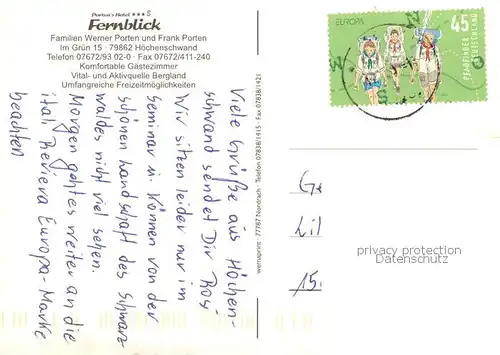 Porten's Hotel ★★★ S
Fernblick
Familien Werner Porten und Frank Porten
Im Grün 15 · 79862 Höchenschwand
Telefon 07672/93 02-0 · Fax 07672/411-240
Komfortable Gästezimmer
Vital- und Aktivquelle Bergland
Umfangreiche Freizeitmöglichkeiten
Viele Grüße aus Höchen-
schwand sendet Dir
Wir sitzen leider nur im
Seminar u. können von der
schönen Landschaft des Schwarz-
waldes nicht viel sehen.
Morgen geht es weiter an die
ital. Reviera Europa-Marke
beachten
wernaprint · 77787 Nordrach · Telefon 07838/1415 · Fax 07838/1421
EUROPA
45
PFADFINDER
DEUTSCHLAND
Gr
Lil
15.
privacy protection
Datenschutz